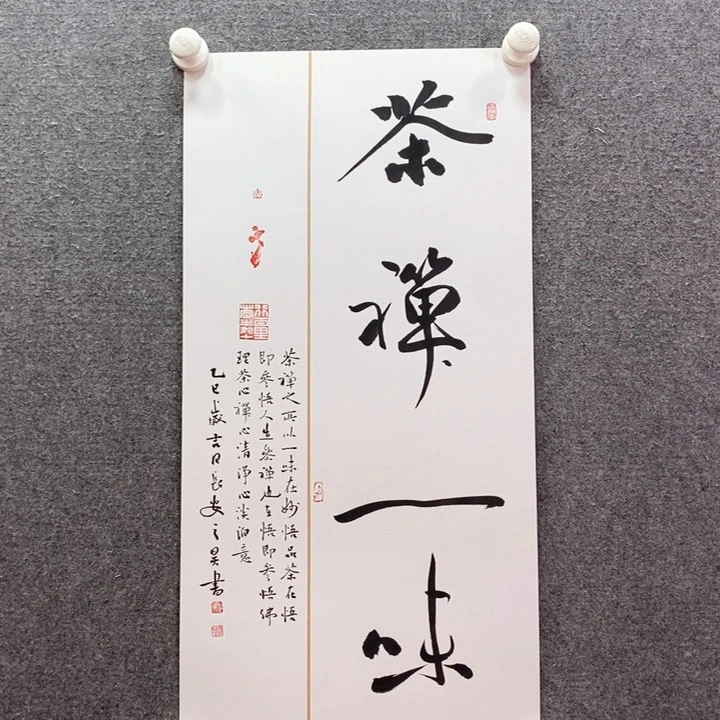 茶禪一味
茶禪之所以一味在妙悟品茶在悟
即參悟人生參禪也在悟即參悟佛
理茶心禪心清淨心淡泊意
乙巳歲吉日長安之昊書